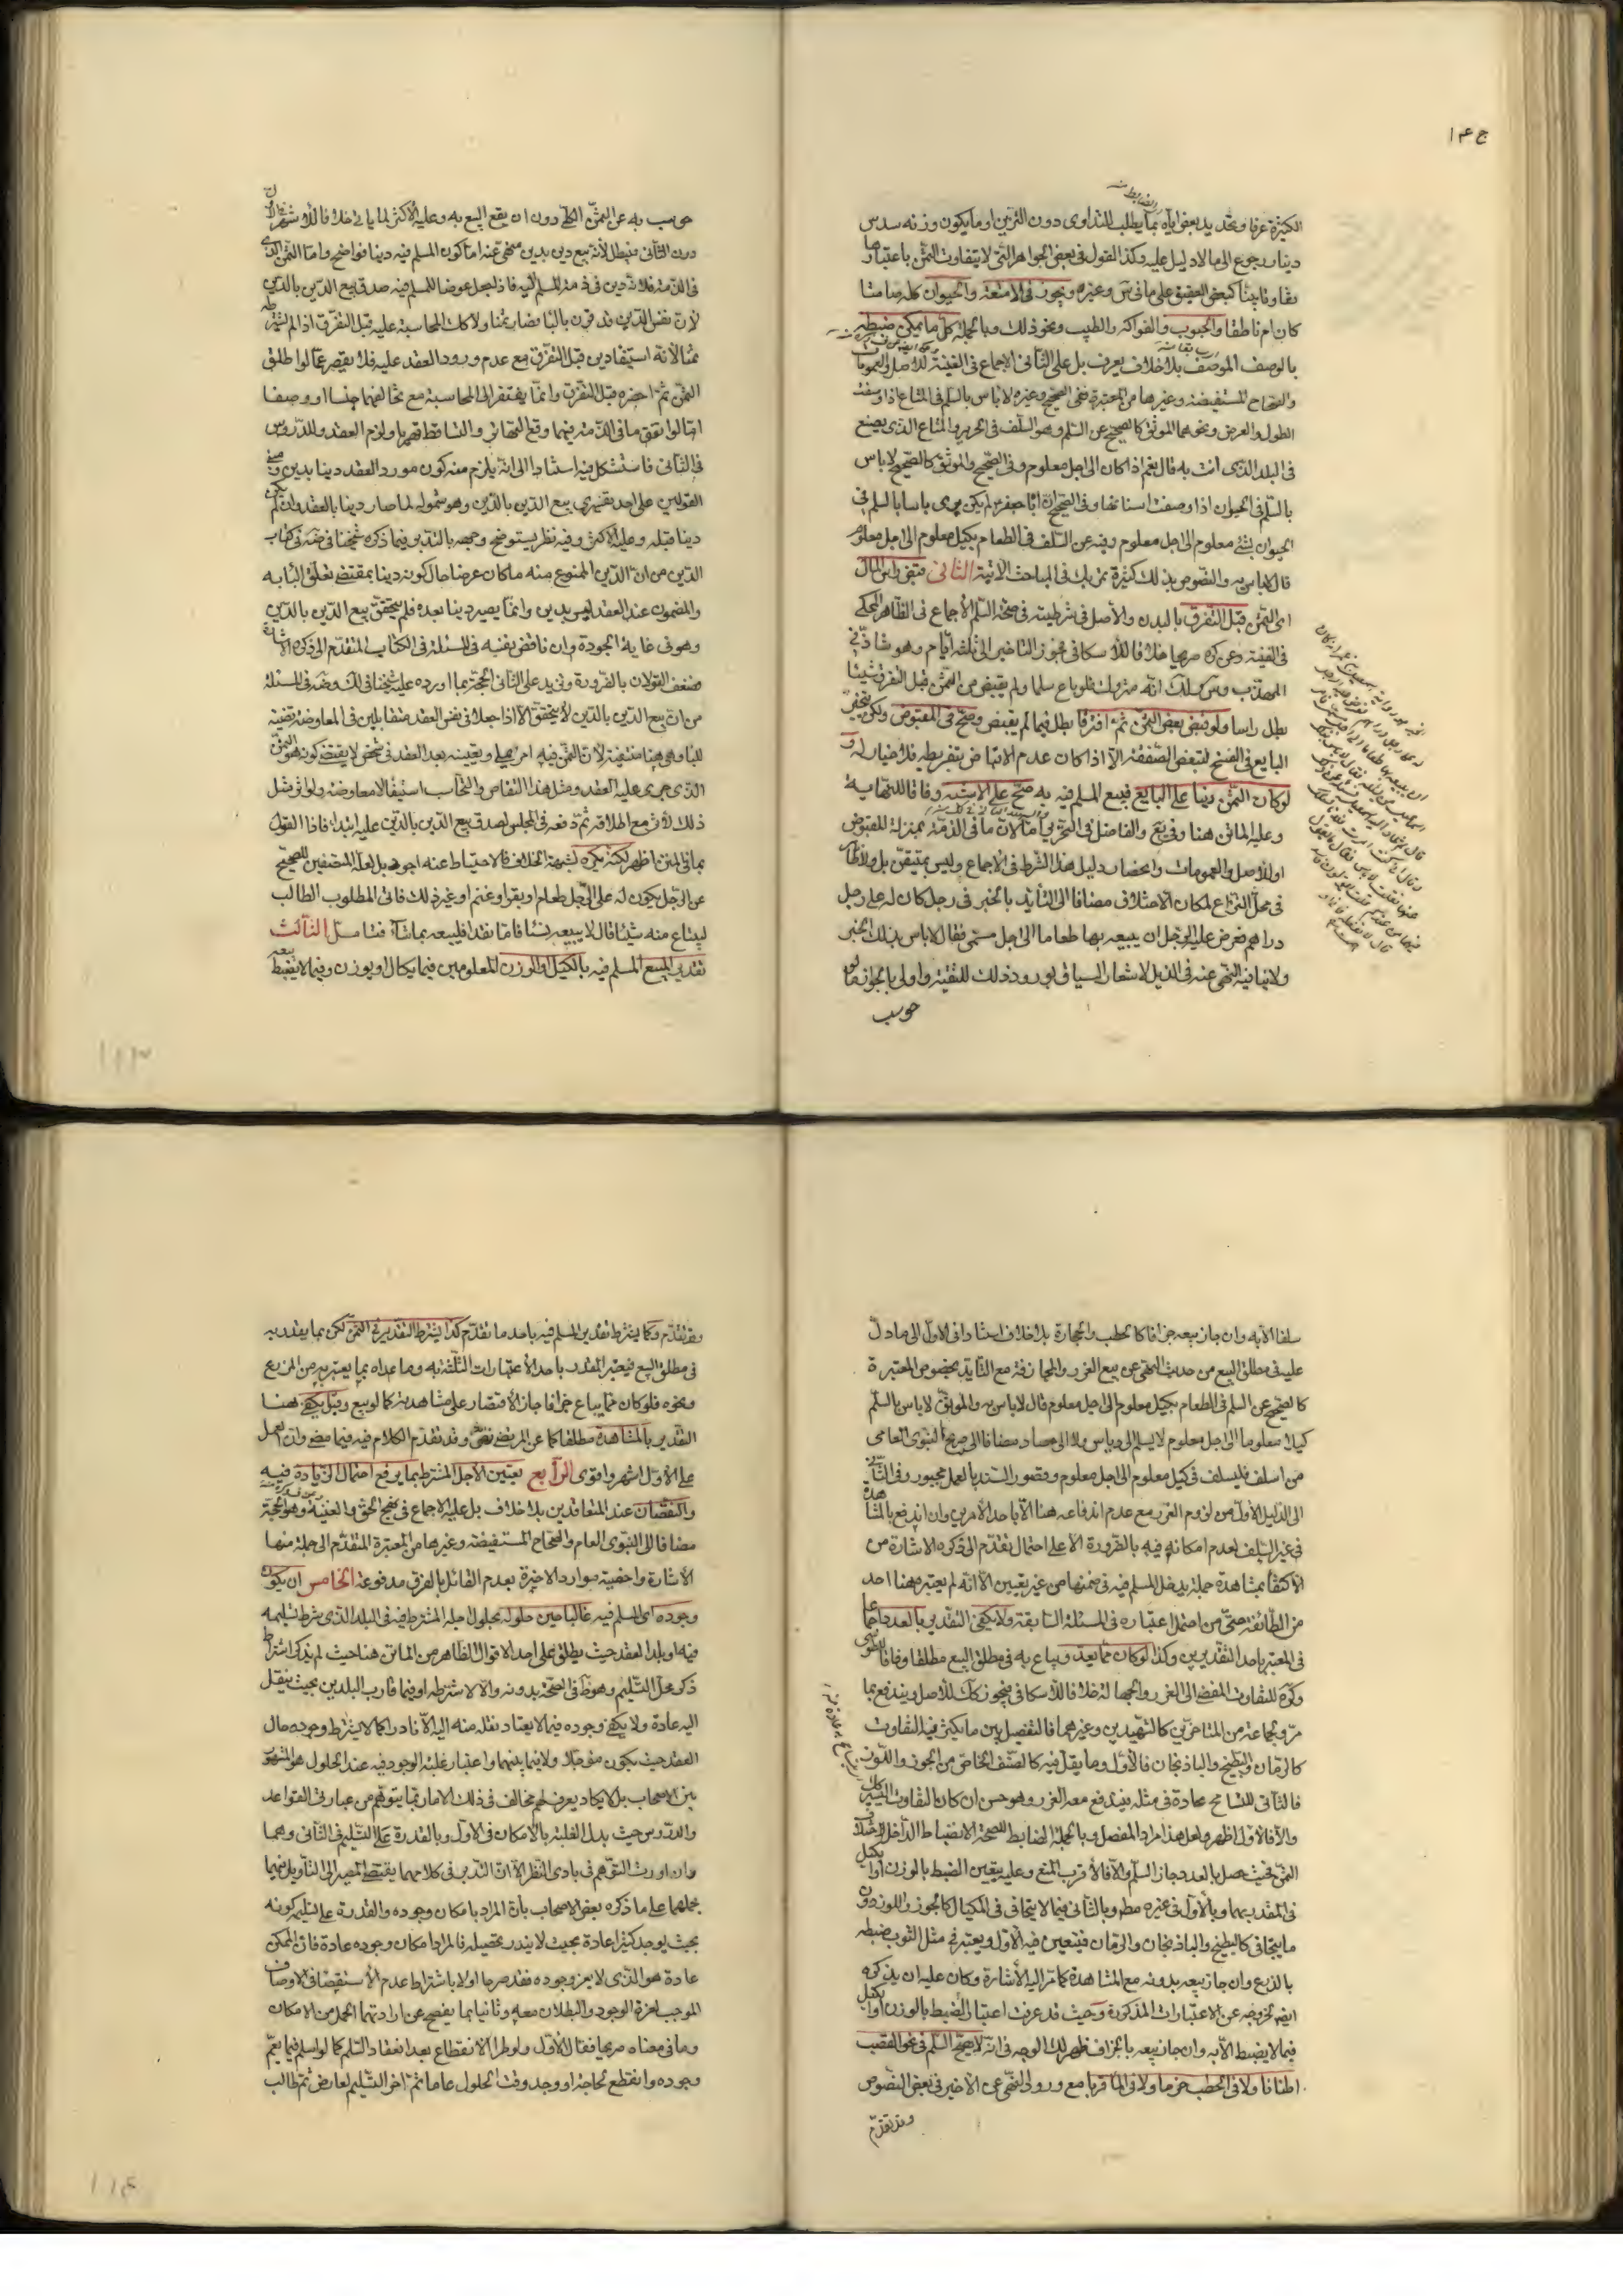 ج ۱۴
الكثيرة عرفا وتحديد بعض اياه بما يطلب للتداوى دون التزين او ما يكون وزنه سدس
دينار رجوع الى ما لا دليل عليه وكذا القول فى بعض الجواهر التى لا يتفاوت الثمن باعتبارها
تفاوتا بينا كبعض العقيق على ما فى س وغيره ويجوز فى الامتعة والحيوان كله صامتا
كان ام ناطقا والحبوب والفواكه والطيب ونحو ذلك وبالجملة كل ما يمكن ضبطه
بالوصف الموصف بلا خلاف يعرف بل على الثانى الاجماع فى الغنية للاصل والعمومات
والصحاح المستفيضة وغيرها من المعتبرة ففى الصحيح وغيره لا باس بالسلم فى المتاع اذا وصفت
الطول والعرض ونحوهما الموثق كالصحيح عن السلم وهو السلف فى الحرير والمتاع الذى يصنع
فى البلد الذى انت به قال نعم اذا كان الى اجل معلوم وفى الصحيح والموثق كالصحيح لا باس
بالسلم فى الحيوان اذا وصفت اسنانها وفى الصحيح ان ابا جعفر لم يكن يرى باسا بالسلم فى
الحيوان بشئ معلوم الى اجل معلوم وفيه عن السلف فى الطعام بكيل معلوم الى اجل معلوم
قال لا باس به والنصوص بذلك كثيرة تمر بك فى المباحث الاتية الثانى قبض راس المال
اى الثمن قبل التفرق بالبدن والاصل فى شرطيته فى صحة السلم الاجماع فى الظاهر المحكى
فى الغنية وعن كره صريحا خلافا للاسكافى فجوز التاخير الى ثلثة ايام وهو شاذ فى
المهذب وس كلك انه متروك فلو باع سلما ولم يقبض من الثمن قبل التفرق شيئا
بطل راسا ولو قبض بعض الثمن ثم افترقا بطل فيما لم يقبض وصح فى المقبوض ولكن تخير
البايع فى الفسخ لتبعض الصفقة الا اذا كان عدم الاقباض بتفريطه فلا خيار له و
لو كان الثمن دينا على البايع فبيع المسلم فيه به صح على الاشبه وفاقا للنهاية
وعليه الماتن هنا وفى يع والفاضل فى التحرير اما لان ما فى الذمة بمنزلة المقبوض
او للاصل والعمومات وانحصار دليل هذا الشرط فى الاجماع وليس بمتيقن بل ولا ظاهر
فى محل النزاع لمكان الاختلاف مضافا الى التأيد بالخبر فى رجل كان له على رجل
دراهم فعرض عليه الرجل ان يبيعه بها طعاما الى اجل مسمى فقال لا باس بذلك الخبر
ولا ينافيه النهى عنه فى الذيل لاشعار السياق بورود ذلك للتقية واولى بالجواز ما لو
حوسب
حوسب به عن الثمن الكلى دون ان يقع البيع به وعليه الاكثر لما ياتى خلافا للاشهر فالاول
دون الثانى فيبطل لانه بيع دين بدين منهى عنه اما كون المسلم فيه دينا فواضح واما الثمن الذى
فى الذمة فلانه دين فى ذمة المسلم اليه فاذا جعل عوضا للمسلم فيه صدق بيع الدين بالدين
لان نفس الدين قد قرن بالباء فصار ثمنا ولا كذلك المحاسبة عليه قبل التفرق اذا لم يشترطه
ثمنا لانه استيفاء دين قبل التفرق مع عدم ورود العقد عليه فلا يقصر عما لو اطلق
الثمن ثم احضره قبل التفرق وانما يفتقر الى المحاسبة مع تخالفهما جنسا او وصفا
اما لو اتفق ما فى الذمة فيهما وقع التهاتر والتساقط قهريا ولزم العقد وللدروس
فى الثانى فاستشكل فيه استنادا الى انه يلزم منه كون مورد العقد دينا بدين ومبنى
القولين على احد تفسيرى بيع الدين بالدين وهو شموله لما صار دينا بالعقد وان لم يكن
دينا قبله وعليه الاكثر وفيه نظر يستوضح وجهه بالتدبر فيما ذكره شيخنا فى ضه فى كتاب
الدين من ان الدين الممنوع منه ما كان عوضا حال كونه دينا بمقتضى تعلق الباء به
والمضمون عند العقد ليس بدين وانما يصير دينا بعده فلم يتحقق بيع الدين بالدين
وهو فى غاية الجودة وان ناقض نفسه فى المسئلة فى الكتاب المتقدم الى ذكره الاشارة
ضعف القولان بالضرورة ويزيد على الثانى الحجة بما اورده عليه شيخنا فى لك وضه فى المسئلة
من ان بيع الدين بالدين لا يتحقق الا اذا جعلا فى نفس العقد متقابلين فى المعاوضة قضية
للباء وهى هنا منتفية لان الثمن فيه امر كلى وتعيينه بعد العقد فى شخص لا يقتضى كونه هو الثمن
الذى جرى عليه العقد ومثل هذا التقاص والتحاسب استيفاء لا معاوضة ولو اثر مثل
ذلك لاثر مع اطلاقه ثم دفعه فى المجلس لصدق بيع الدين بالدين عليه ابتداء فاذا القول
بما فى المتن اظهر لكنه يكره لشبهة الخلاف فالاحتياط عنه اجود بل لعله المتعين للصحيح
عن الرجل يكون له على الرجل طعام او بقر او غنم او غير ذلك فاتى المطلوب الطالب
ليبتاع منه شيئا قال لا يبيعه نسئا فاما نقدا فليبعه بما شاء فتامل الثالث
تقدير المبيع المسلم فيه بالكيل والوزن المعلومين فيما يكال او يوزن وفيما لا يضبط بيعه
سلفا الا به وان جاز بيعه جزافا كالحطب والحجارة بلا خلاف استنادا فى الاول الى ما دل
عليه فى مطلق البيع من حديث النهى عن بيع الغرر والمجازفة مع التايد بخصوص المعتبرة
كالصحيح عن السلم فى الطعام بكيل معلوم الى اجل معلوم قال لا باس به والموثق لا باس بالسلم
كيلا معلوما الى اجل معلوم لا يسلم الى دياس ولا الى حصاد مضافا الى صريح النبوى العامى
من اسلف فليسلف فى كيل معلوم الى اجل معلوم وقصور السند بالعمل مجبور وفى الثانى
الى الدليل الاول من لزوم الغرر مع عدم اندفاعه هنا الا باحد الامرين وان اندفع بالمشاهدة
فى غير السلف لعدم امكانه فيه بالضرورة الا على احتمال تقدم الى ذكره الاشارة من
الاكتفاء بمشاهدة جملة يدخل المسلم فيه فى ضمنها من غير تعيين الا انه لم يعتبره هنا احد
من الطائفة حتى من احتمل اعتباره فى المسئلة السابقة ولا يكفى التقدير بالعدد اجماعا
فى المعتبر باحد التقديرين وكذا لو كان مما يعد ويباع به فى مطلق البيع مطلقا وفاقا للطوسى
وكره للتفاوت المفضى الى الغرر والجهالة خلافا للاسكافى فيجوز كك للاصل ويندفع بما
مر وجماعة من المتاخرين كالشهيدين وغيرهما فالتفصيل بين ما يكثر فيه التفاوت
كالرمان والبطيخ والباذنجان فالاول وما يقل فيه كالصنف الخاص من الجوز واللوز
فالثانى للتسامح عادة فى مثله فيندفع معه الغرر وهو حسن ان كان بالتفاوت اليسير
والا فالاول اظهر ولعل هذا مراد المفصل وبالجملة الضابط للصحة الانضباط الداخل لاختلاف
الثمن فحيث حصل بالعدد جاز السلم والا فالاقرب المنع وعليه يتعين الضبط بالوزن او الكيل
فى المقدر بهما وبالاول فى غيره مطلقا وبالثانى فيما لا يتجافى فى المكيال كالجوز واللوز دون
ما يتجافى كالبطيخ والباذنجان والرمان فيتعين فيه الاول ويعتبر فى مثل الثوب ضبطه
بالذرع وان جاز بيعه بدونه مع المشاهدة كما مر اليه الاشارة وكان عليه ان يذكره
ايضا لخروجه عن الاعتبارات المذكورة وحيث قد عرفت اعتبار الضبط بالوزن او الكيل
فيما لا يضبط الا به وان جاز بيعه بالجزاف ظهر لك الوجه فى انه لا يصح السلم فى نحو القصب
اطنانا ولا فى الحطب حزما ولا فى الماء قربا مع ورود النهى عن الاخير فى بعض النصوص
وقد تقدم
وقد تقدم وكما يشترط تقدير المسلم فيه باحد ما تقدم كذا يشترط التقدير فى الثمن لكن بما يقدر به
فى مطلق البيع فيعتبر المقدر باحد الاعتبارات الثلثة به وما عداه بما يعتبر به من الذرع
ونحوه فلو كان مما يباع جزافا جاز الاقتصار على مشاهدته كما لو بيع وقيل يكفى هنا
التقدير بالمشاهدة مطلقا كما عن المرتضى وقد تقدم الكلام فيه فيما مضى وان العمل
على الاول اشهر واقوى الرابع تعيين الاجل المشترط بما يرفع احتمال الزيادة فيه
والنقصان عند المتعاقدين بلا خلاف بل عليه الاجماع فى نهج الحق والغنية وهو الحجة
مضافا الى النبوى العام والصحاح المستفيضة وغيرها من المعتبرة المتقدم الى جملة منها
الاشارة واخصية موارد الاخيرة بعدم القائل بالفرق مدفوعة الخامس ان يكون
وجوده اى المسلم فيه غالبا حين حلوله بحلول اجله المشترط فيه فى البلد الذى شرط تسليمه
فيه او بلد العقد حيث يطلق على احد الاقوال الظاهر من الماتن هنا حيث لم يذكر اشتراط
ذكر محل التسليم وهو ظ فى الصحة بدونه والا لاشترطه او فيما قارب البلدين بحيث ينقل
اليه عادة ولا يكفى وجوده فيما لا يعتاد نقله منه اليه الا نادرا كما لا يشترط وجوده حال
العقد حيث يكون مؤجلا ولا فيما بينهما واعتبار غلبة الوجود فيه عند الحلول هو المشهور
بين الاصحاب بل لا يكاد يعرف لهم مخالف فى ذلك الا ما ربما يتوهم من عبارتى القواعد
والدروس حيث بدل الغلبة بالامكان فى الاول وبالقدرة على التسليم فى الثانى وهما
وان اورثا التوهم فى بادى النظر الا ان التدبر فى كلامهما يقتضى المصير الى التاويل فيهما
بحملهما على ما ذكره بعض الاصحاب بان المراد بامكان وجوده والقدرة على تسليمه كونه
بحيث يوجد كثيرا عادة بحيث لا يندر تحصيله فالمراد امكان وجوده عادة فان الممكن
عادة هو الذى لا يعز وجوده فقد صرحا اولا باشتراط عدم الاستقصاء فى الاوصاف
الموجب لعزة الوجود والبطلان معه وثانيا بما يفصح عن ارادتهما المحمل من الامكان
وما فى معناه صريحا فقال الاول ولو طرا الانقطاع بعد انعقاد السلم كما لو اسلم فيما يعم
وجوده وانقطع لجائحة او وجد وقت الحلول عاما ثم اخر التسليم لعارض ثم طالب